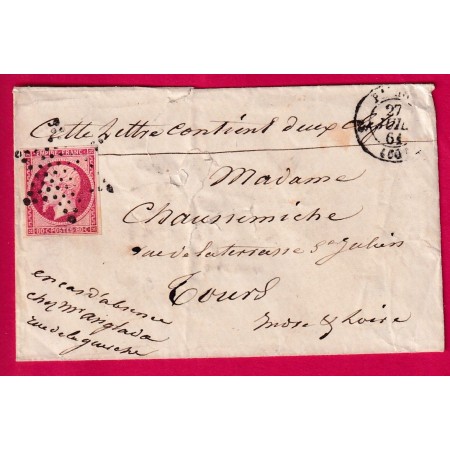 Cette Lettre contient deux
27
JUIL
61
(60)
EMPIRE FRANC
80 C POSTES 80 C
Madame
Chaussemiche
rue de la terrasse St Julien
Tours
Indre & Loire
en cas d'absence
chez Mr anglada
rue de la guerche